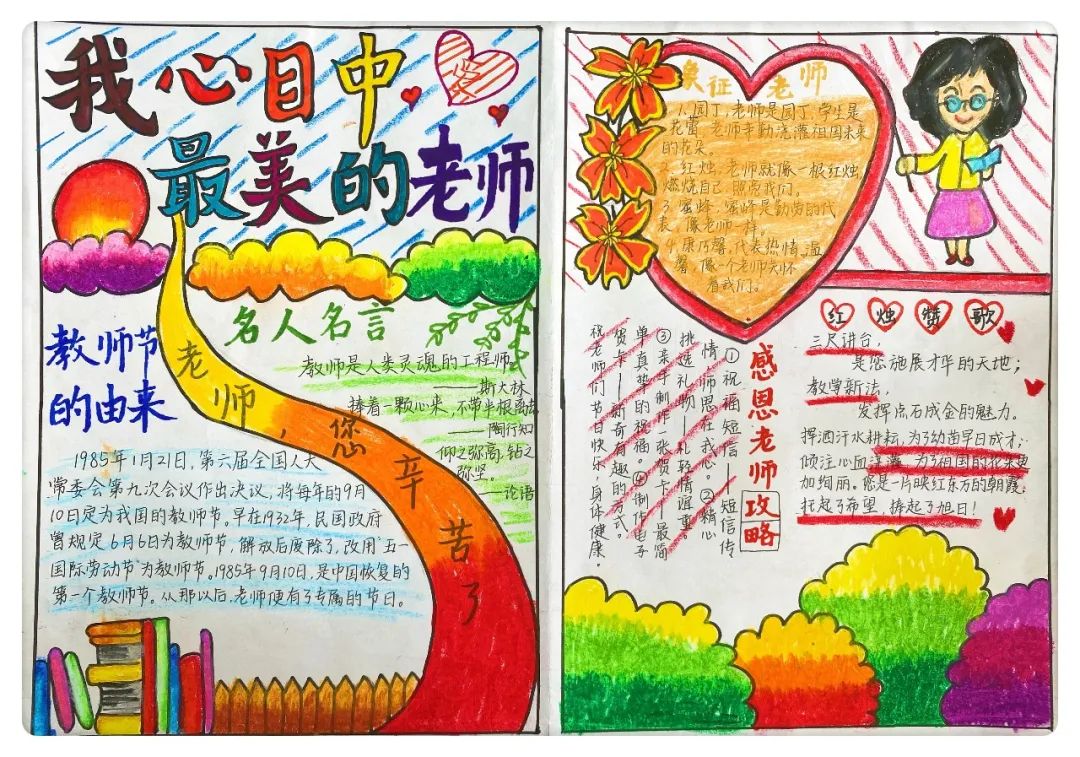 我心目中
爱
最美的老师
教师节
的由来
1985年1月21日,第六届全国人大
常委会第九次会议作出决议,将每年的9月
10日定为我国的教师节。早在1932年,民国政府
曾规定6月6日为教师节,解放后废除了,改用“五一
国际劳动节”为教师节。1985年9月10日,是中国恢复的
第一个教师节。从那以后,老师便有了专属的节日。
老师,您辛苦了
名人名言
教师是人类灵魂的工程师
——斯大林
捧着一颗心来,不带半根草去
——陶行知
仰之弥高,钻之
弥坚。
——论语
象征老师
1.园丁,老师是园丁,学生是
花蕾,老师辛勤浇灌祖国未来
的花朵。
2.红烛,老师就像一根红烛,
燃烧自己,照亮我们。
3.蜜蜂,蜜蜂是勤劳的代
表,像老师一样。
4.康乃馨,代表热情、温
馨,像一个老师关怀
着我们。
感恩老师攻略
①祝福短信——短信传
情,师恩在我心。②精心
挑选礼物——礼轻情谊重
③亲手制作一张贺卡——最简
单真挚的祝福。④制作电子
贺卡——新奇有趣的方式。
祝老师们节日快乐,身体健康。
红烛赞歌
三尺讲台,
是您施展才华的天地;
教学新法,
发挥点石成金的魅力。
挥洒汗水耕耘,为了幼苗早日成才;
倾注心血深藻,为了祖国的花未更
加绚丽。您是一片映红东方的朝霞;
托起了希望,捧起了旭日!